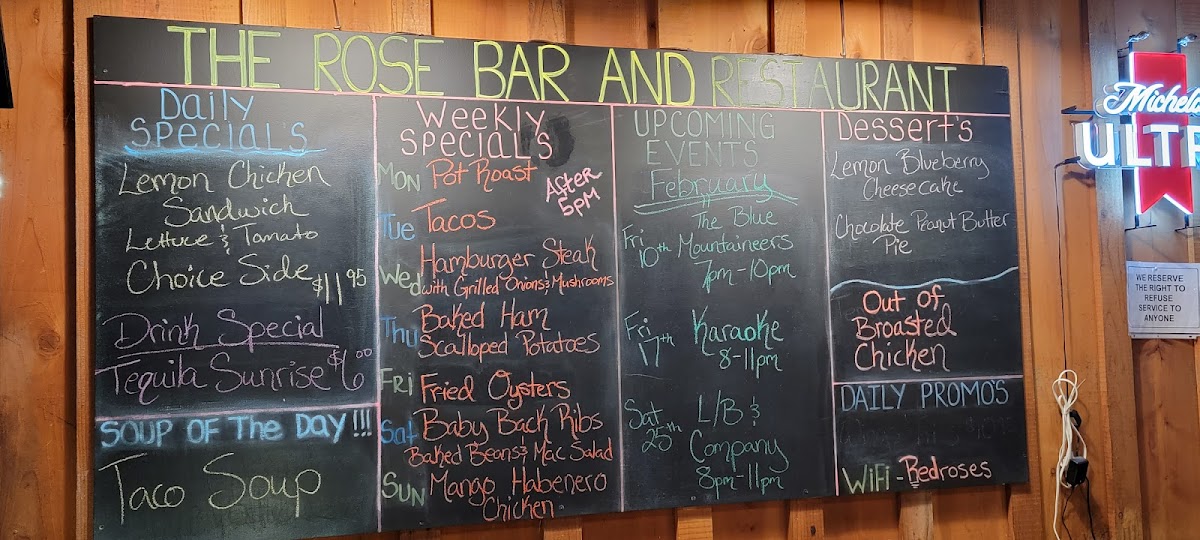 THE ROSE BAR AND RESTAURANT
Daily
SPECIAL'S
Lemon Chicken
Sandwich
Lettuce & Tomato
Choice Side $11.95
Drink Special
Tequila Sunrise $6.00
SOUP OF THE DAY!!!
Taco Soup
Weekly
SPECIALS
After
5pm
Mon Pot Roast
Tue Tacos
Wed Hamburger Steak
with Grilled Onions & Mushrooms
Thu Baked Ham
Scalloped Potatoes
Fri Fried Oysters
Sat Baby Back Ribs
Baked Beans & Mac Salad
Sun Mango Habenero
Chicken
UPCOMING
EVENTS
February
Fri 10th The Blue
Mountaineers
7pm-10pm
Fri 17th Karaoke
8-11pm
Sat 25th L/B &
Company
8pm-11pm
Dessert's
Lemon Blueberry
Cheesecake
Chocolate Peanut Butter
Pie
Out of
Broasted
Chicken
DAILY PROMO'S
WiFi - Redroses
Michel
ULT
WE RESERVE
THE RIGHT TO
REFUSE
SERVICE TO
ANYONE